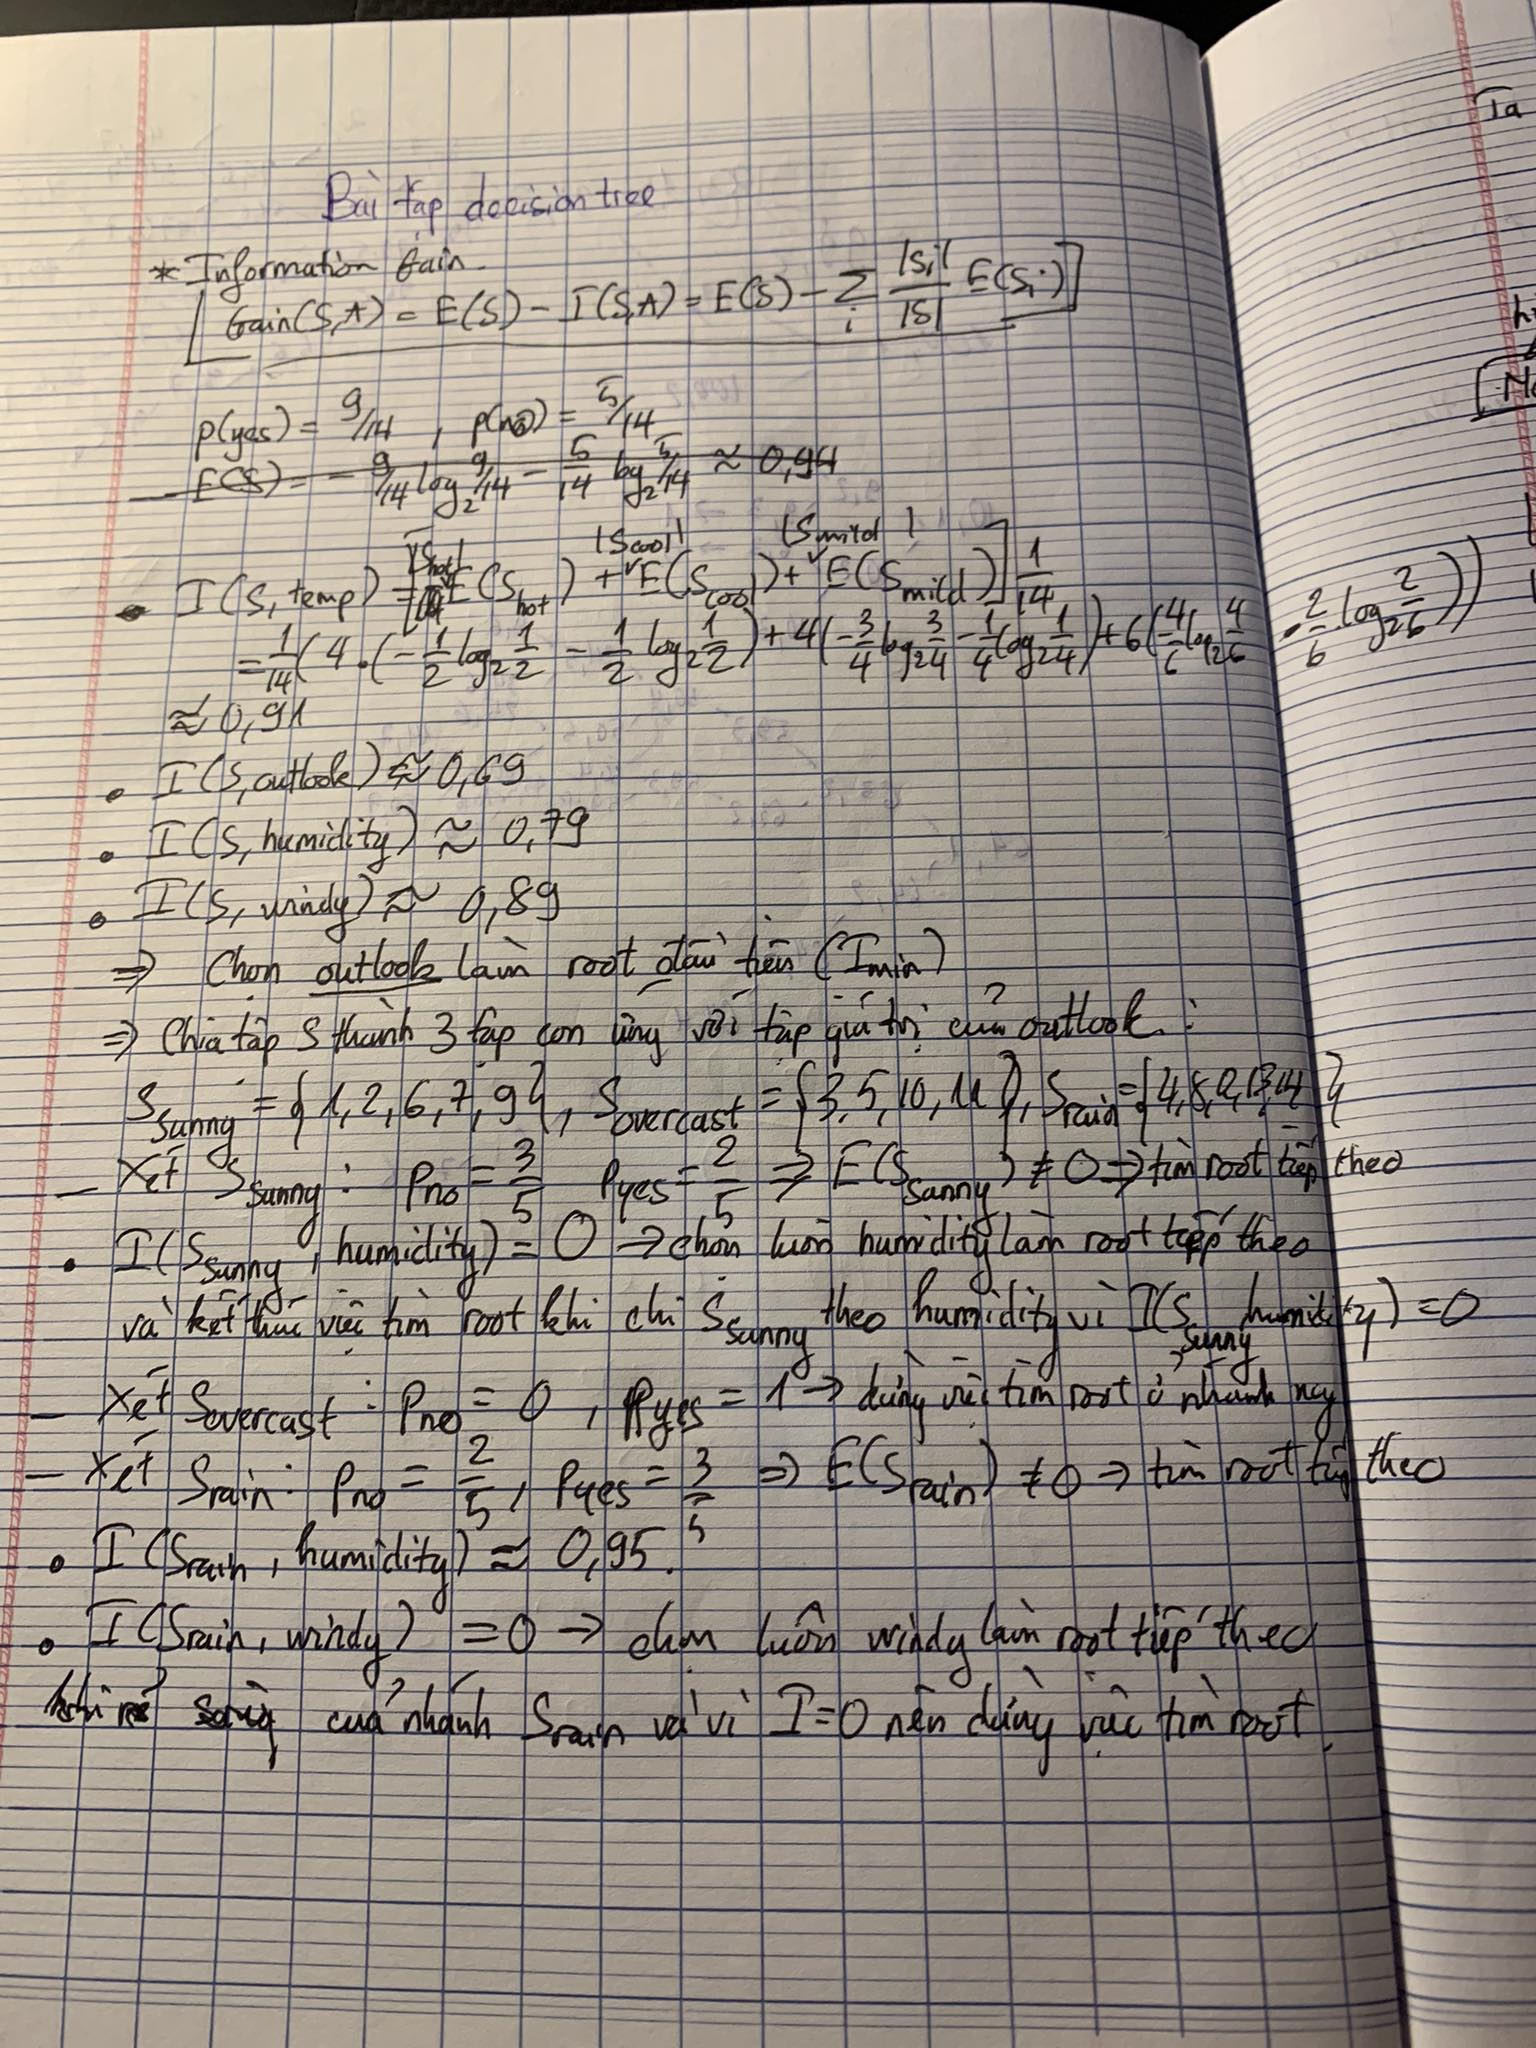 Bài tập decision tree
* Information Gain.
Gain(S,A) = E(S) - I(S,A) = E(S) - Σ_i |Si|/|S| E(Si)
p(yes) = 9/14 , p(no) = 5/14
E(S) = - 9/14 log₂ 9/14 - 5/14 log₂ 5/14 ≈ 0,94
|Shot| |Scool| |Smild|
• I(S, temp) = [E(Shot) + E(Scool) + E(Smild)] 1/14
= 1/14 (4·(-1/2 log₂ 1/2 - 1/2 log₂ 1/2) + 4(-3/4 log₂ 3/4 - 1/4 log₂ 1/4) + 6(4/6 log₂ 4/6 · 2/6 log₂ 2/6))
≈ 0,91
• I(S, outlook) ≈ 0,69
• I(S, humidity) ≈ 0,79
• I(S, windy) ≈ 0,89
⇒ Chọn outlook làm root đầu tiên (Imin)
⇒ Chia tập S thành 3 tập con ứng với tập giá trị của outlook :
Ssunny = {1, 2, 6, 7, 9}, Sovercast = {3, 5, 10, 11}, Srain = {4, 8, 13, 14}
- Xét Ssunny : Pno = 3/5 Pyes = 2/5 ⇒ E(Ssunny) ≠ 0 → tìm root tiếp theo
• I(Ssunny, humidity) = 0 → chọn luôn humidity làm root tiếp theo
và kết thúc việc tìm root khi chi Ssunny theo humidity vì I(Ssunny humidity) = 0
- Xét Sovercast : Pno = 0 , Pyes = 1 → dừng việc tìm root ở nhánh này
- Xét Srain : Pno = 2/5 , Pyes = 3/5 ⇒ E(Srain) ≠ 0 → tìm root tiếp theo
• I(Srain, humidity) ≈ 0,95.
• I(Srain, windy) = 0 → chọn luôn windy làm root tiếp theo
của nhánh Srain và vì I = 0 nên dừng việc tìm root.
Ta